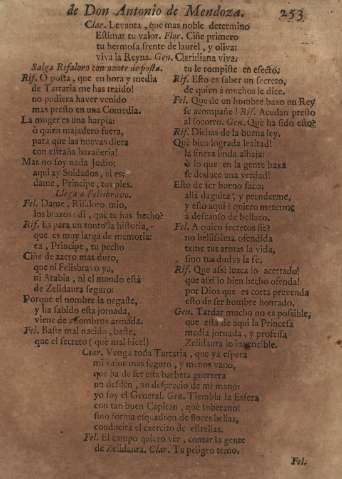 de Don Antonio de Mendoza. 253
Clar. Levanta, que mas noble determino
Estimar tu valor. Flor. Ciñe primero
tu hermosa frente de laurel, y oliva:
viva la Reyna. Gen. Claridiana viva:
Salga Rifaloro con azote de posta.
Rif. O posta, que en hora y media
de Tartaria me has traido!
no pudiera haver venido
mas presto en una Comedia.
La muger es una harpia:
ò quien majadero fuera,
para que las nonvas diera
con estraña bavaleria!
Mas no soy nada Judio:
aqui ay Soldados, si es;
dame, Principe, tus pies.
Llega à Felisbravo.
Fel. Dame, Rifaloro mio,
los brazos: di, que te has hecho?
Rif. Es para un tonto la historia,
que es muy larga de memoria:
ea, Principe, tu pecho
Ciñe de azero mas duro,
que ni Felisbravo yà,
ni Arabia, ni el mundo està
de Zelidaura seguro:
Porque el nombre la negaste,
y ha sabido esta jornada,
viene de asombros armada.
Fel. Baste mal nacido, baste,
que el secreto (què mal hice!)
tu le rompiste en efecto;
Rif. Esto es saber un secreto,
de quien à muchos le dice.
Fel. Que de un hombre baxo un Rey
se acompañe! Rif. Acudan presto
al socorro. Gen. Què ha sido esto?
Rif. Dichas de la buena ley.
Què bien lograda lealtad!
la fineza linda alhaja!
ò lo que en la gente baxa
se desluce una verdad!
Esto de ser bueno faco;
alla daguita, y prenderme,
y esto aqui è quiero meterme
à descanso de bellaco.
Fel. A quien secretos fie?
no bellissima ofendida
teme tus armas la vida,
sino tus dudas la fe.
Rif. Que assi luzca lo acertado!
que assi lo bien hecho ofenda!
por Dios que es corta prevenda
esto de ser hombre honrado.
Gen. Tardar mucho no es possible,
que està de aqui la Princesa
media jornada, y professa
Zelidaura lo invencible.
Clar. Venga toda Tartaria, que yà espera
mi valor mas seguro, y menos vano,
que ha de ser esta barbara guerrera
un desdèn, un desprecio de mi mano:
yo soy el General. Gen. Tiembla la Esfera
con tan buen Capitan, que soberano!
sino forma esquadron de flores bellas,
conducirà el exercito de estrellas.
Fel. El campo quiero ver, contar la gente
de Zelidaura. Clar. Tu peligro temo.
Fel.